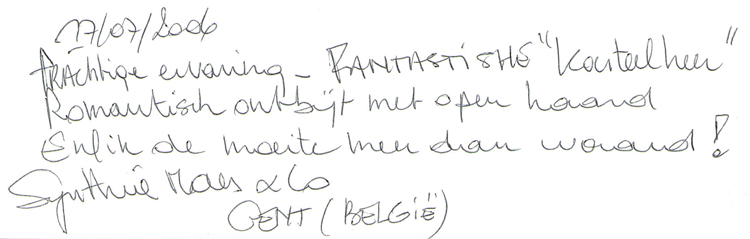 17/07/2006
Prachtige ervaring - FANTASTISHE "Kasteelheer"
Romantisch ontbijt met open haard
Enfin de moeite meer dan waard!
Synthie Maes & Co
GENT (BELGIË)